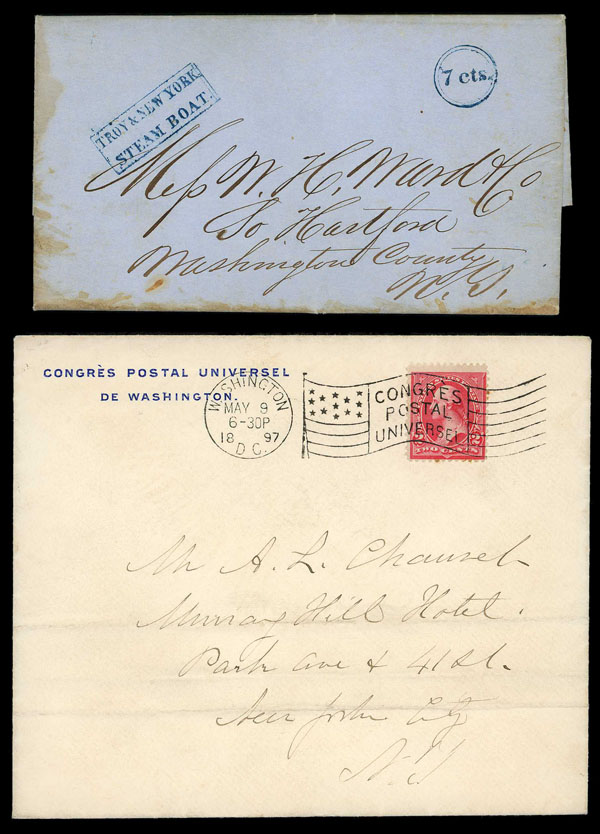 TROY & NEW YORK
STEAM BOAT.
7 cts.
Mess W. H. Ward & Co
So Hartford
Washington County
N. Y.
CONGRÈS POSTAL UNIVERSEL
DE WASHINGTON.
WASHINGTON
MAY 9
6-30P
18 97
D.C.
CONGRES
POSTAL
UNIVERSEL
2 2
TWO CENTS
Mr A. L. Chausel
Murray Hill Hotel.
Park Ave & 41 St.
New York City
N.Y